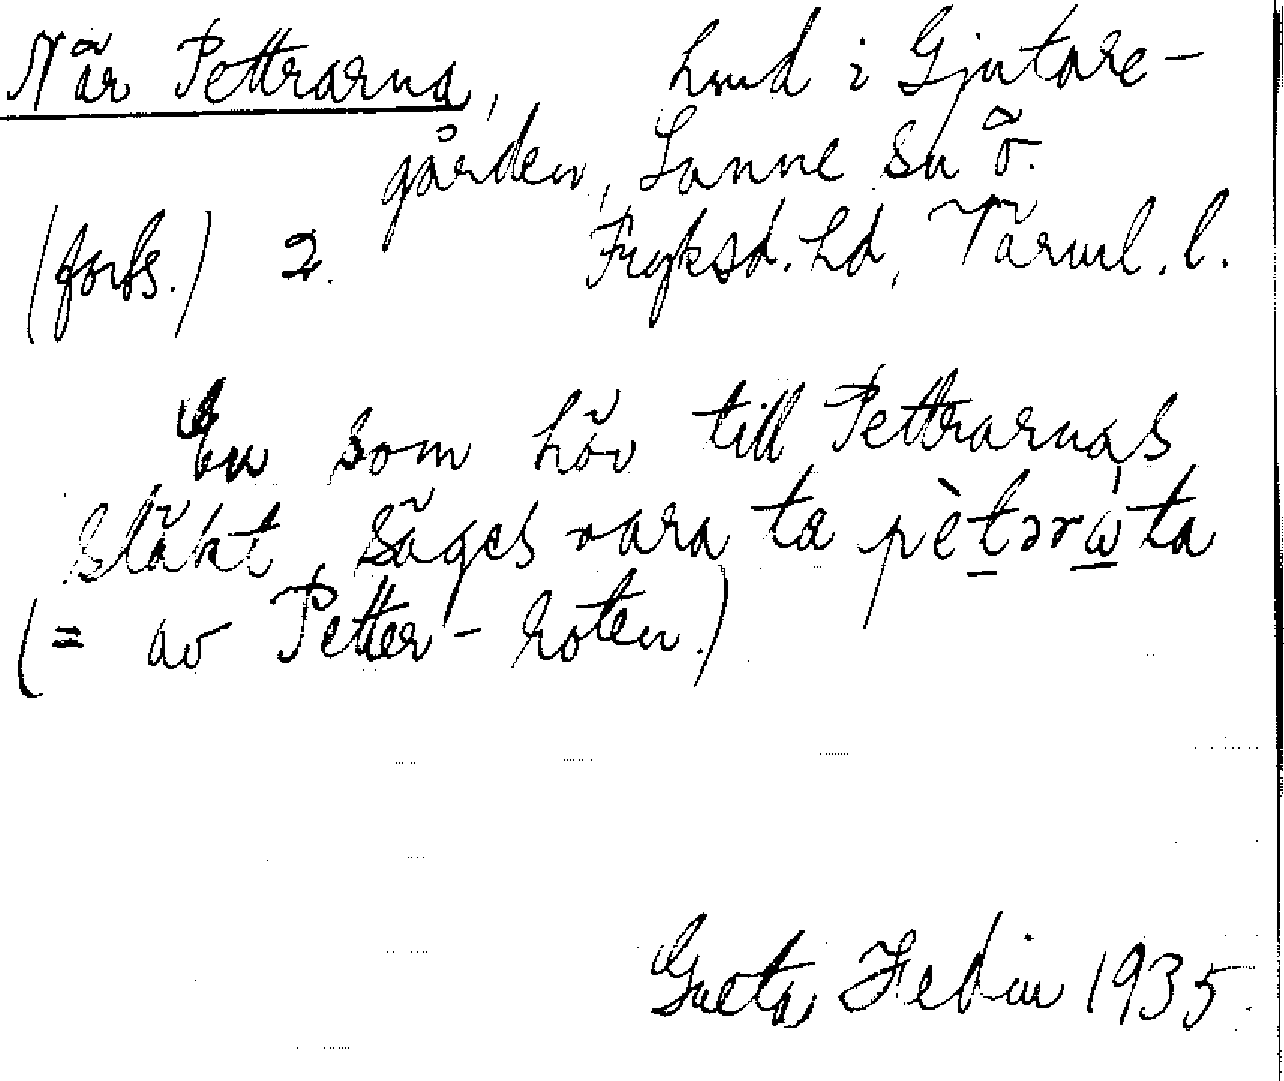 När Pettrarna, hmd i Gjutare-
gården, Lanne sn Ö.
(forts.) 2. Fryksd. hd, Värml. l.
En som hör till Pettrarnas
släkt, säges vara ta pètərὼta
(= av Petter-roten.)
Greta Hedin 1935.